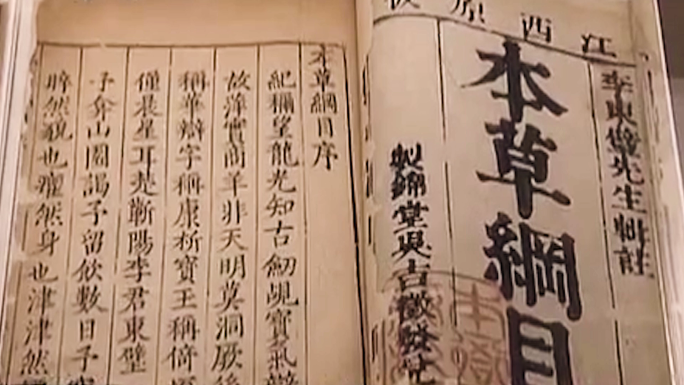 江西原
李東璧先生輯註
本草綱目
製錦堂吳吉徵發
本草綱目序
紀稱望龍光知古劒覘寶氣辯
故萍實商羊非天明莫洞厥後
稱華辯字稱康析寶玉稱倚
僅晨星耳楚蘄陽李君東璧
予弇山園謁予留飲數日予
睟然貌也癯然身也津津然